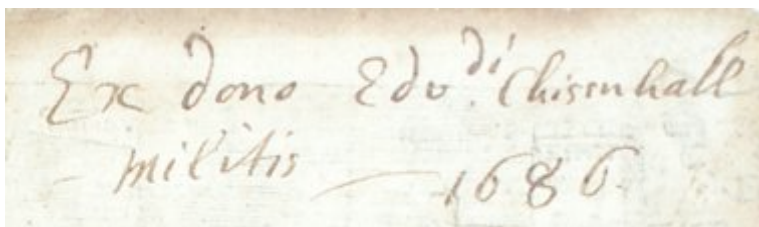 Ex dono Edv.di Chisenhall
militis — 1686.